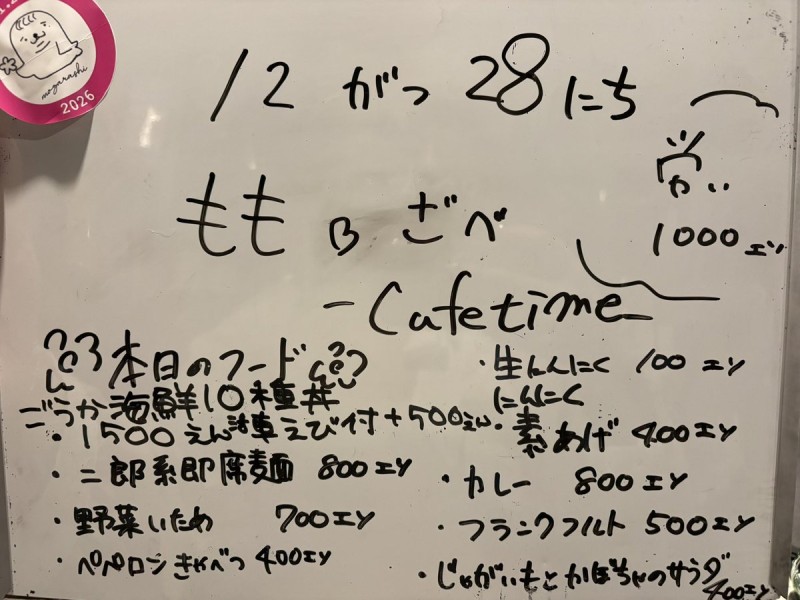 12 がつ 28 にち
もも B ざべ
- Cafetime -
1000 エン
本日のフード
ごうか海鮮10種丼
・1500えん 車えび付+500えん
・二郎系即席麺 800エン
・野菜いため 700エン
・ペペロンきゃべつ 400エン
・生にんにく 100 エン
にんにく
・素あげ 400エン
・カレー 800エン
・フランクフルト 500エン
・じゃがいもとかぼちゃのサラダ
400エン
mogarashi
2026